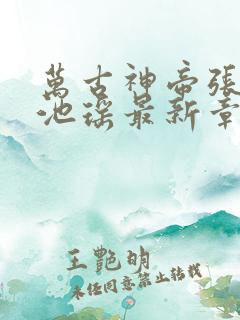 萬古神帝張
池瑤最新章
王艷明
未經同意禁止轉載